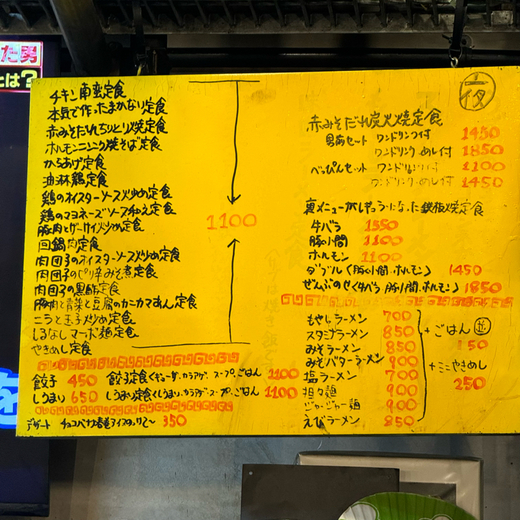 た男
とは?
夜
チキン南蛮定食
本気で作ったまかない定食
赤みそだれちりとり焼定食
ホルモンニンニク焼そば定食
からあげ定食
油淋鶏定食
鶏のオイスターソース炒め定食
鶏のマヨネーズソース和え定食
豚肉とゲソキムチ炒め定食
回鍋肉定食
肉団子のオイスターソース炒め定食
肉団子のピリ辛みそ煮定食
肉団子の黒酢定食
豚肉と青菜と豆腐のカニカマあん定食
ニラと玉子炒め定食
しるなしマーボ麺定食
やきめし定食
1100
餃子 450 餃子定食(ギョーザ、カラアゲ、スープ、ごはん) 1100
しうまい 650 しうまい定食(しうまい、カラアゲ、スープ、ごはん) 1100
デザート チョコバナナ春巻アイス 350
赤みそだれ炭火焼定食
男前セット ワンドリンク付 1450
ワンドリンク・めし付 1850
べっぴんセット ワンドリンク付 1100
ワンドリンク・めし付 1450
裏メニューがレギュラーになった鉄板焼定食
牛バラ 1550
豚小間 1100
ホルモン 1100
ダブル(豚小間、ホルモン) 1450
ぜんぶのせ(牛バラ、豚小間、ホルモン) 1850
もやしラーメン 700
スタミナラーメン 850
みそラーメン 850
みそバターラーメン 900
塩ラーメン 700
担々麺 900
ジャージャー麺 900
えびラーメン 850
+ごはん
50
+ミニやきめし
250